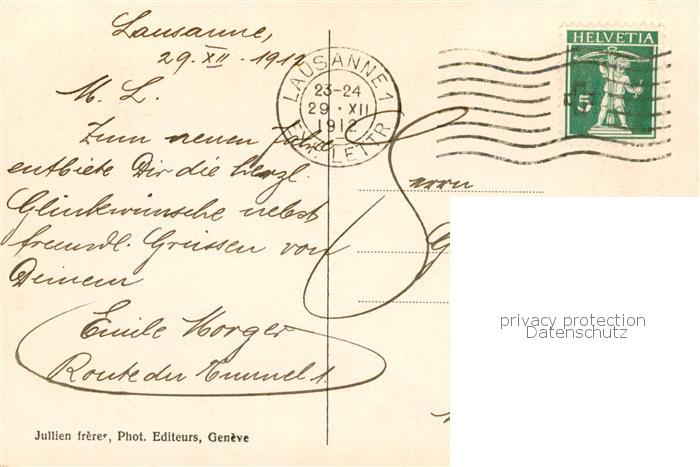 Lausanne,
29. XII. 1912
M. L.
Zum neuen Jahre
entbiete Dir die herzl.
Glückwünsche nebst
freundl. Grüssen von
Deinem
Emile Morger
Route du Tunnel 1.
Jullien frères, Phot. Editeurs, Genève
LAUSANNE 1
23-24
29 · XII
1912
EXP. LETTR
HELVETIA
5
Herrn
privacy protection
Datenschutz